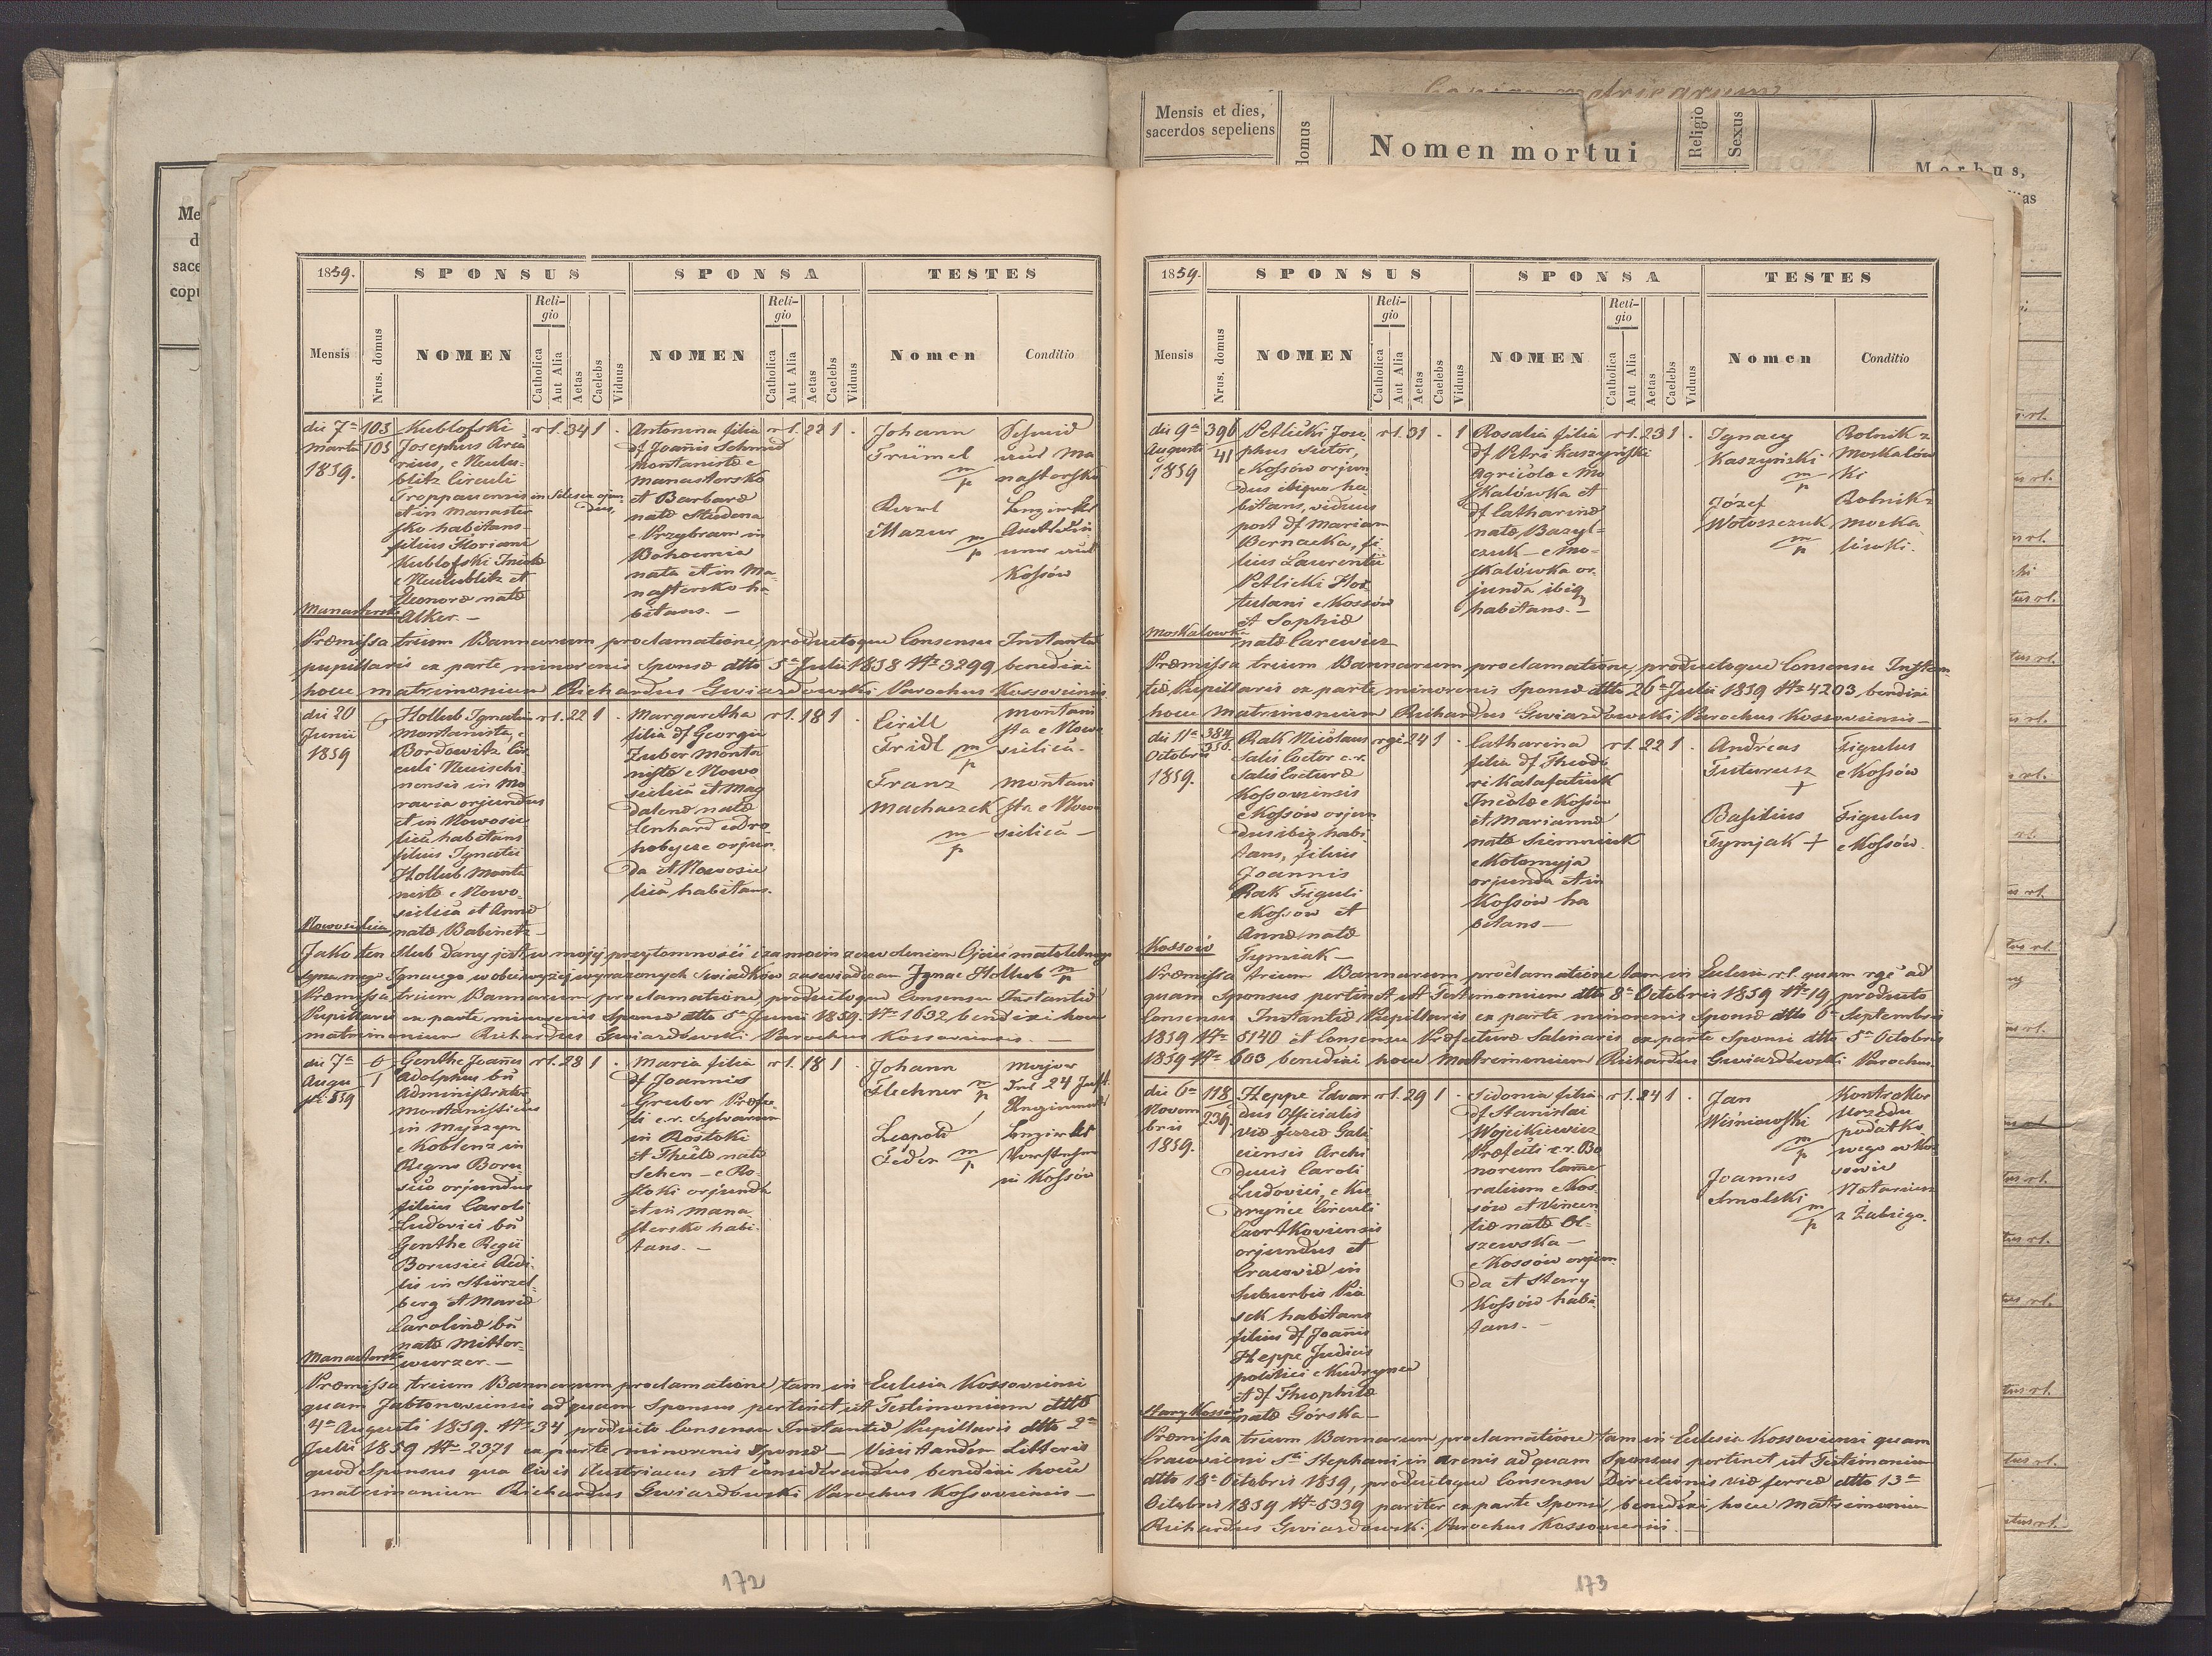 Mensis et dies,
sacerdos sepeliens
domus
Nomen mortui
Religio
Sexus
Morbus,
1859.
SPONSUS
SPONSA
TESTES
Mensis
Nrus. domus
NOMEN
Religio
Catholica
Aut Alia
Aetas
Caelebs
Viduus
NOMEN
Religio
Catholica
Aut Alia
Aetas
Caelebs
Viduus
Nomen
Conditio
die 7a
Martii
1859.
103
105
Kublofski
Josephus
blitz Circuli
Troppauensis in Silesia
et in Manaster
sko habitans
filius Floriani
Kublofski Incolæ
e Neulublitz et
Eleonoræ natæ
Alker. –
rl. 34 1 .
Antonina filia
df Joannis Schmid
Montanistæ e
Manastersko
et Barbaræ
natæ Studena
e Przybram in
Bohoemia
nata et in Ma-
nastersko ha-
bitans. –
rl. 22 1 .
Johann
Trümel
m/p
Karl
Mazur
m/p
Schmid
aus Ma
nastersko
Kossów
Manastersko
Præmissa trium Bannorum proclamatione, productoque Consensu Instantiæ
pupillaris ex parte minorenis Sponsæ dtto 5a Julii 1858 No 3299 benedixi
hocce matrimonium Richardus Gwiazdowski Parochus Kossoviensis
die 20
Junii
1859
6
Hollub Ignatius
montanista, e
Bordowitz Cir
culi Neuischi
nensis in Mo
ravia orjundus
et in Nowosie
lica habitans
filius Ignatii
Hollub Monta
nistæ e Nowo
sielica et Annæ
natæ Babinetz –
rl. 22 1 .
Margaretha
filia df Georgii
Zubor Monta
nistæ e Nowo
sielica et Mag
dalenæ natæ
Lenhard e Dro
hobycze orjun
da et Nowosie
lica habitans.
rl. 18 1 .
Cirill
Fridl m/p
Franz
Machaczek
m/p
Montani
sta e Nowo
sielica –
Montani
sta e Nowo
sielica –
Nowosielica
Jako ten Slub dany jest w mojej przytomności i za moim zezwoleniem Ojca małoletniego
syna mego Ignacego w obec wyżej wyrażonych świadków zaświadczam Ignac Hollub m/p
Præmissa trium Bannorum proclamatione, productoque Consensu Instantiæ
Pupillaris ex parte minorenis Sponsæ dtto 5a Junii 1859. No 1632 benedixi hocce
matrimonium Richardus Gwiazdowski Parochus Kossoviensis. –
die 7a
Augu
sti 859
6
1
Genthe Joannes
Adolphus bn
Administrator
Montanisticus
in Myszyn
e Koblenz in
Regno Boru
siæ orjundus
filius Caroli
Ludovici bn
Genthe Regii
Borusici Aedi-
lis in Stürzel-
berg et Mariæ
Carolinæ bn
natæ Mitter-
wurzer. –
rl. 28 1 .
Maria filia
df Joannis
Gruber Præfe
cti c.r. Sylvarum
in Rostoki
et Theclæ natæ
Schen – e Ro-
stoki orjunda
et in Mana-
stersko habi-
tans. –
rl. 18 1 .
Johann
Flechner m/p
Leopold
Feder m/p
major
Inf 24
Regiment
Bezirks
Vorsteher
in Kossów
Manastersko
Præmissa trium Bannorum proclamatione tam in Ecclesia Kossoviensi
quam Jabłonoviensi ad quam Sponsus pertinet ut Testimonium dtto
4a Augusti 1859. No 34 producto Consensu Instantiæ Pupillaris dtto 2a
Julii 1859 No 2371 ex parte minorenis Sponsæ –
quod Sponsus qua Civis Austriacus est considerandus benedixi hocce
matrimonium Richardus Gwiazdowski Parochus Kossoviensis –
172
1859.
SPONSUS
SPONSA
TESTES
Mensis
Nrus. domus
NOMEN
Religio
Catholica
Aut Alia
Aetas
Caelebs
Viduus
NOMEN
Religio
Catholica
Aut Alia
Aetas
Caelebs
Viduus
Nomen
Conditio
die 9a
Augusti
1859
396
41
Petlicki Jose
phus Sutor,
e Kossów orjun
dus ibique ha
bitans, viduus
post df Mariam
Bernacka, fi
lius Laurentii
Petlicki Hor
tulani e Kossów
et Sophiæ
natæ Carewicz
rl. 31 . 1
Rosalia filia
df Petri Kaszyński
Agricolæ e Mo
skalówka et
df Catharinæ
natæ Bazyl-
czuk – e Mo-
skalówka or
junda ibiq
habitans. –
rl. 23 1 .
Ignacy
Kaszyński
m/p
Józef
Wołoszczuk
m/p
Rolnik z
Moskalów
ki
Rolnik z
Moska
lówki.
Moskalowka
Præmissa trium Bannorum proclamatione, productoque Consensu Instan-
tiæ Pupillaris ex parte minorenis Sponsæ dtto 26a Julii 1859 No 4203, benedixi
hocce Matrimonium Richardus Gwiazdowski Parochus Kossoviensis –
die 11a
Octobris
1859.
384
356.
Rak Nicolaus
Salis Coctor c.r.
Salis Cocturæ
Kossoviensis
e Kossów orjun
dus ibiq habi
tans, filius
Joannis
Rak Figuli
e Kossów et
Annæ natæ
Tymiak –
rgc 24 1 .
Catharina
filia df Theodo
ri Kalafatiuk
Incolæ e Kossów
et Mariannæ
natæ
e Kołomyja
orjunda et in
Kossów ha
bitans –
rl. 22 1 .
Andreas
Futurusz
+
Basilius
Tymjak +
Figulus
e Kossów
Figulus
e Kossów.
Kossów
Præmissa trium Bannorum proclamatione tam in Ecclesia rl. quam rgc ad
quam Sponsus pertinet ut Testimonium dtto 8a Octobris 1859 No 19, producto
Consensu Instantiæ Pupillaris ex parte minorenis Sponsæ dtto 6a Septembris
1859 No 5140 et Consensu Præfecturæ Salinaris ex parte Sponsi dtto 5a Octobris
1859 No 603 benedixi hocce Matrimonium Richardus Gwiazdowski Parochus
die 6a
Novem
bris
1859.
118
239.
Heppe Edvar
dus Officialis
viæ ferreæ Gali
ciensis Archi
ducis Caroli
Ludovici, e Ku
drynce Circuli
Czortkoviensis
orjundus et
Cracoviæ in
Suburbio Pia
sek habitans
filius df Joannis
Heppe Judicis
politici e Kudrynce
et df Theophilæ
natæ Górska –
rl. 29 1 .
Sidonia filia
df Stanislai
Wojcikiewicz
Præfecti c.r. Bo
norum Came
ralium e Kos
sów et Vincen
tiæ natæ Ol-
szewska –
e Kossów orjun
da et Stary
Kossów habi
tans. –
rl. 24 1 .
Jan
Wiśniowski
m/p
Joannes
Smolski
m/p
Kontrolor
Urzędu
podatko
wego w Kos
sowie
Notariusz
z Zabiego.
Stary Kossów
Præmissa trium Bannorum proclamatione tam in Ecclesia Kossoviensi quam
Cracoviensi Sti Stephani in arenis ad quam Sponsus pertinet ut Testimonium
dtto 18a Octobris 1859, productoque Consensu Directionis viæ ferreæ dtto 13a
Octobris 1859 No 5339 pariter ex parte Sponsi, benedixi hocce Matrimonium
Richardus Gwiazdowski Parochus Kossoviensis. –
173